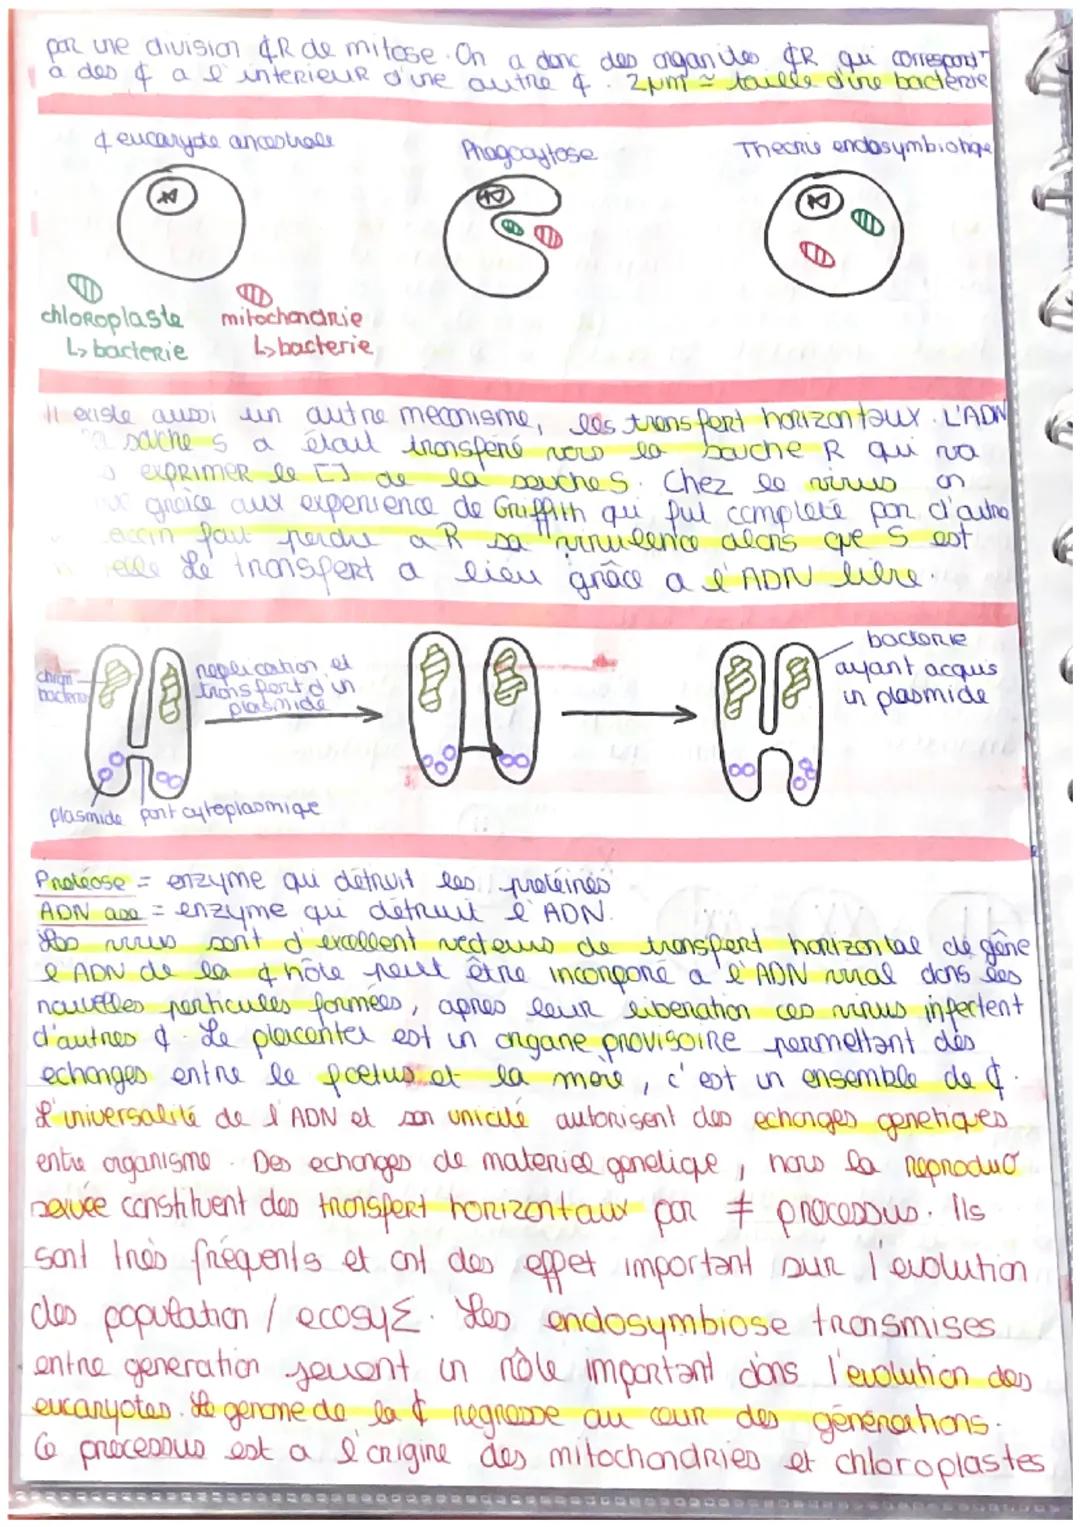 par une division ¢R de mitose. On a donc des organites ¢R qui correspond
a des ¢ a l'interieur d'une autre ¢. 2µm = taille d'une bacterie
¢ eucaryote ancestrale
Phagocytose
Theorie endosymbiotique
chloroplaste
mitochondrie
↳ bacterie
↳ bacterie
Il existe aussi un autre mecanisme, les transfert horizontaux. L'ADN
souche S a était transféré vers la souche R qui va
exprimer le [] de la souche S. Chez le virus on
grâce aux experience de Griffith qui fut completé par d'autre
fait perdre a R sa virulence alors que S est
elle Le transfert a lieu grâce a l'ADN libre.
chrom
bacterie
replication et
transfort d'un
plasmide
bacterie
ayant acquis
un plasmide
plasmide pont cytoplasmique
Protéase = enzyme qui détruit les protéines
ADN ase = enzyme qui détruit l'ADN.
Les virus sont d'excellent vecteurs de transfert horizontal de gène
l'ADN de la ¢ hôte peut être incorporé a l'ADN viral dans les
nouvelles particules formées, apres leur liberation ces virus infectent
d'autres ¢. Le placenta est un organe provisoire permettant des
echanges entre le foetus et la mère, c'est un ensemble de ¢.
L'universalité de l'ADN et son unicité autorisent des echanges genetiques
entre organisme. Des echanges de materiel genetique, hors la reproduc
sexuée constituent des transfert horizontaux par ≠ processus. Ils
sont très fréquents et ont des effet important sur l'evolution
des population / ecosyΣ. Les endosymbiose transmises
entre generation jouent un rôle important dans l'evolution des
eucaryotes. Le genome de la ¢ regresse au cour des générations.
Ce processus est a l'origine des mitochondries et chloroplastes